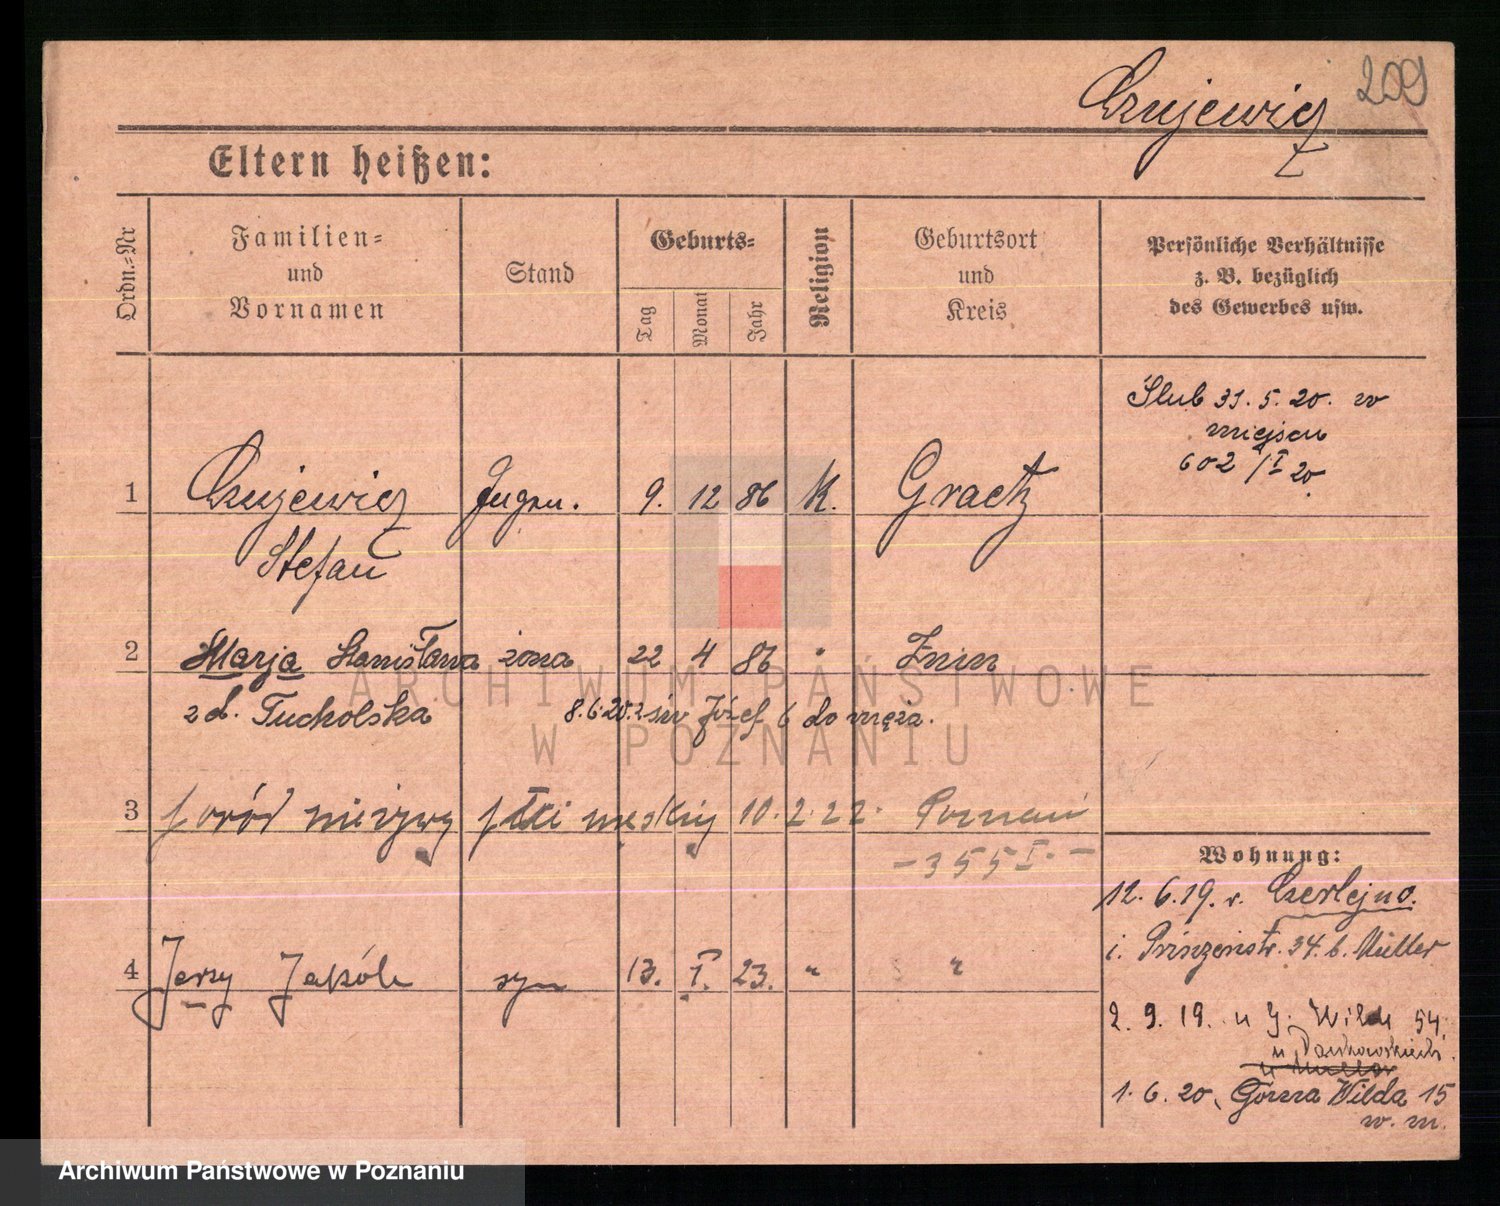 209
Czujewicz
Eltern heißen:
Ordn.=Nr
Familien=
und
Vornamen
Stand
Geburts=
Tag
Monat
Jahr
Religion
Geburtsort
und
Kreis
Persönliche Verhältnisse
z. B. bezüglich
des Gewerbes usw.
Ślub 31. 5. 20. w
miejscu
602/I 20.
1 Czujewicz 9. 12 86 K. Graetz
Stefan
2 Marja Stanisława żona 22 4 86 " Znin
z d. Tucholska 8.6.20. Józef 6 do męża.
3 poród nieżywy płci męskiej 10. 2. 22. Poznań
- 355 I. -
4 Jerzy Jakób syn 13. I. 23. " "
Wohnung:
12. 6. 19. v. Czerlejno.
i. Prinzenstr. 34. b. Müller
2. 9. 19. u G. Wilda 54.
1. 6. 20. Górna Wilda 15
w. m.
ARCHIWUM PAŃSTWOWE
W POZNANIU
Archiwum Państwowe w Poznaniu